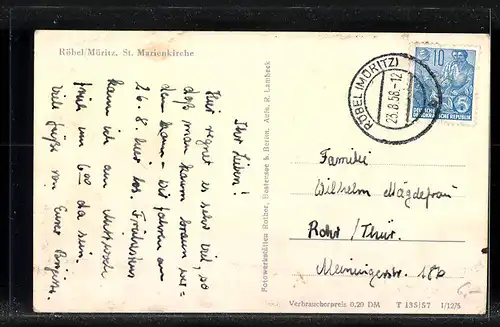 Röbel/Müritz. St. Marienkirche
Ihr Lieben!
Hier regnet es sehr viel, so
daß man kaum braun wer-
den kann. Wir fahren am
26. 8. hier los. Frühestens
kann ich am Mittwoch
früh um 6⁰⁰ da sein.
Viele Grüße von Eurer
Fotowerkstätten Rother, Bestensee b. Berlin. Aufn. R. Lambeck
RÖBEL (MÜRITZ)
23.8.58.-12
10
5
DEUTSCHE
DEMOKRATISCHE REPUBLIK
Familie
Wilhelm Mägdefrau
Rohr/Thür.
Meiningerstr. 180
Verbraucherpreis 0.20 DM T 135/57 1/12/5